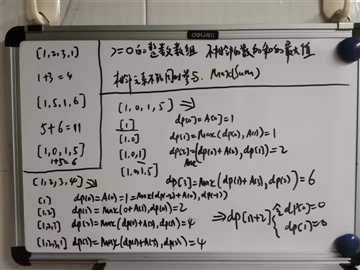 deli
[1,2,3,1]
1+3=4
[1,5,1,6]
5+6=11
[1,0,1,5]
1+5=6
>=0的整数数组 不相邻的数的和的最大值
相邻元素不能同时参与. Max(Sum)
[1,0,1,5] =>
[1] dp[0]=A[0]=1
[1,0] dp[1]=Max(dp[0],A[1])=1
[1,0,1] dp[2]=(dp[0]+A[2],dp[1])=2
Max
[1,0,1,5]
dp[3]=Max(dp[1]+A[3],dp[2])=6
[1,2,3,4] =>
[1] dp[0]=A[0]=1
[1,2] dp[1]=Max(0+A[1],dp[0])=2
[1,2,3] dp[2]=Max(dp[0]+A[2],dp[1])=4
dp[3]=Max(dp[1]+A[3],dp[2])=4
=>dp[n+2]